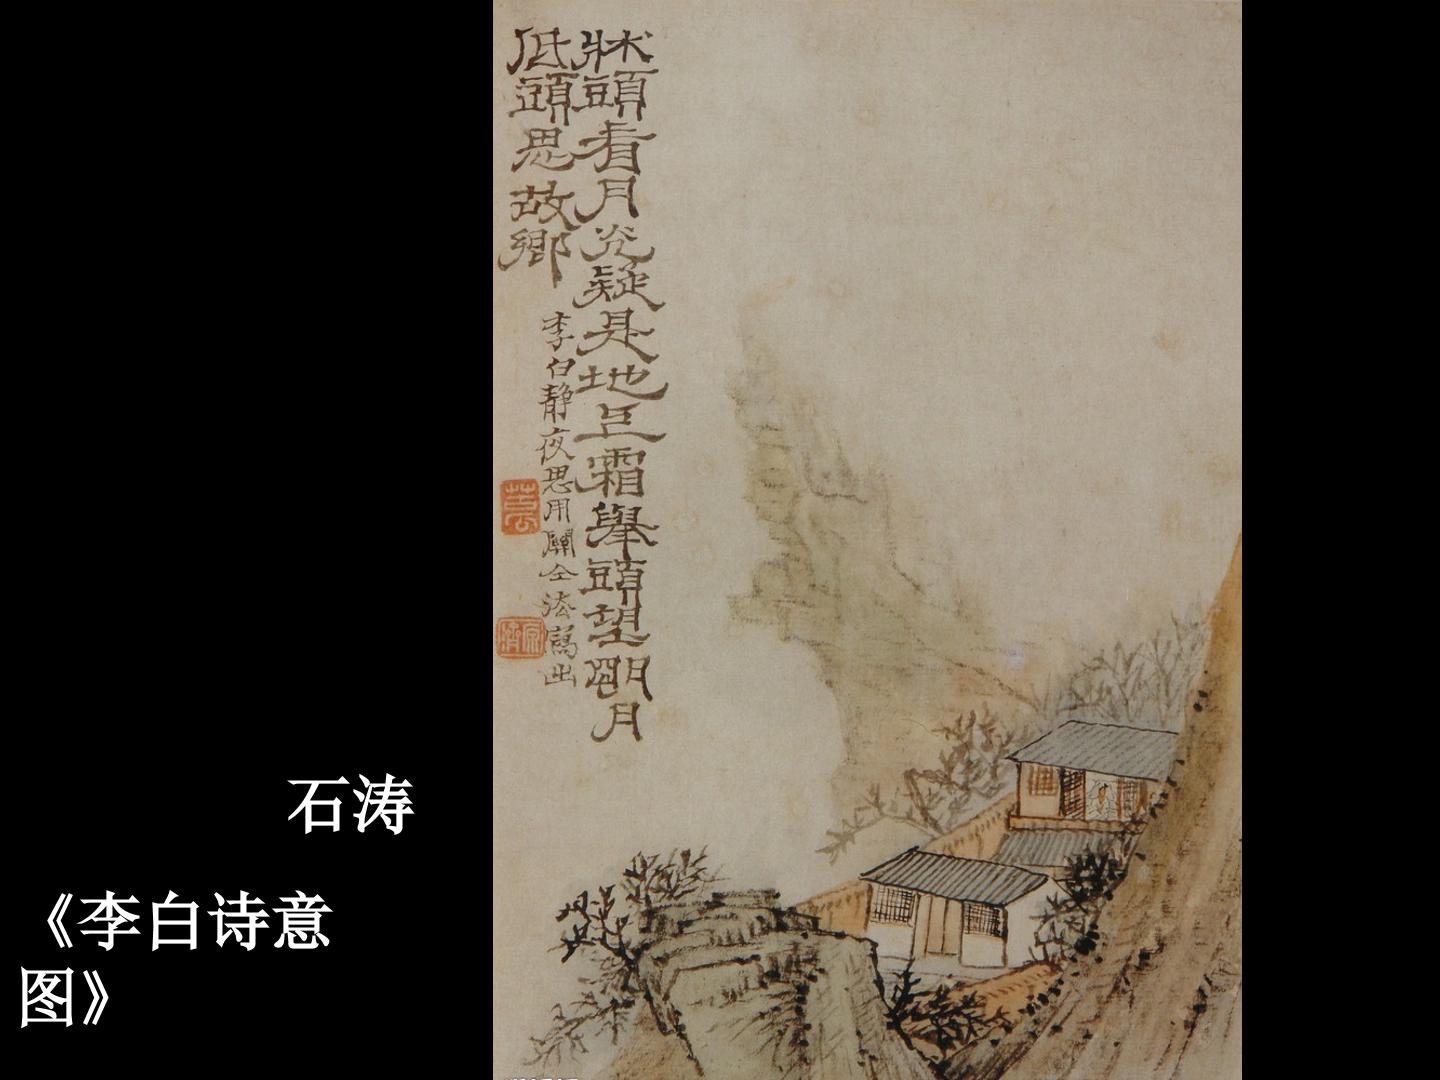 牀頭看月光疑是地上霜舉頭望明月
低頭思故鄉
李白靜夜思用關仝法寫出
石涛
《李白诗意
图》